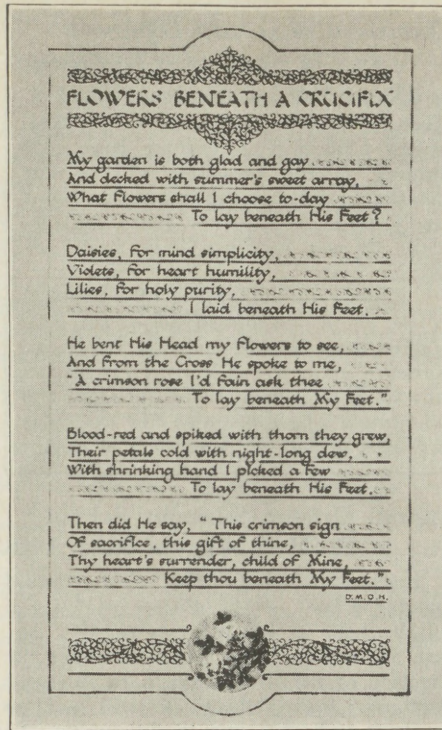 FLOWERS BENEATH A CRUCIFIX
My garden is both glad and gay
And decked with summer's sweet array,
What flowers shall I choose to-day
To lay beneath His Feet?
Daisies, for mind simplicity,
Violets, for heart humility,
Lilies, for holy purity,
I laid beneath His Feet.
He bent His Head my flowers to see,
And from the Cross He spoke to me,
"A crimson rose I'd fain ask thee
To lay beneath My Feet."
Blood-red and spiked with thorn they grew,
Their petals cold with night-long dew,
With shrinking hand I picked a few
To lay beneath His Feet.
Then did He say, "This crimson sign
Of sacrifice, this gift of thine,
Thy heart's surrender, child of Mine,
Keep thou beneath My Feet."
D.M.O.H.